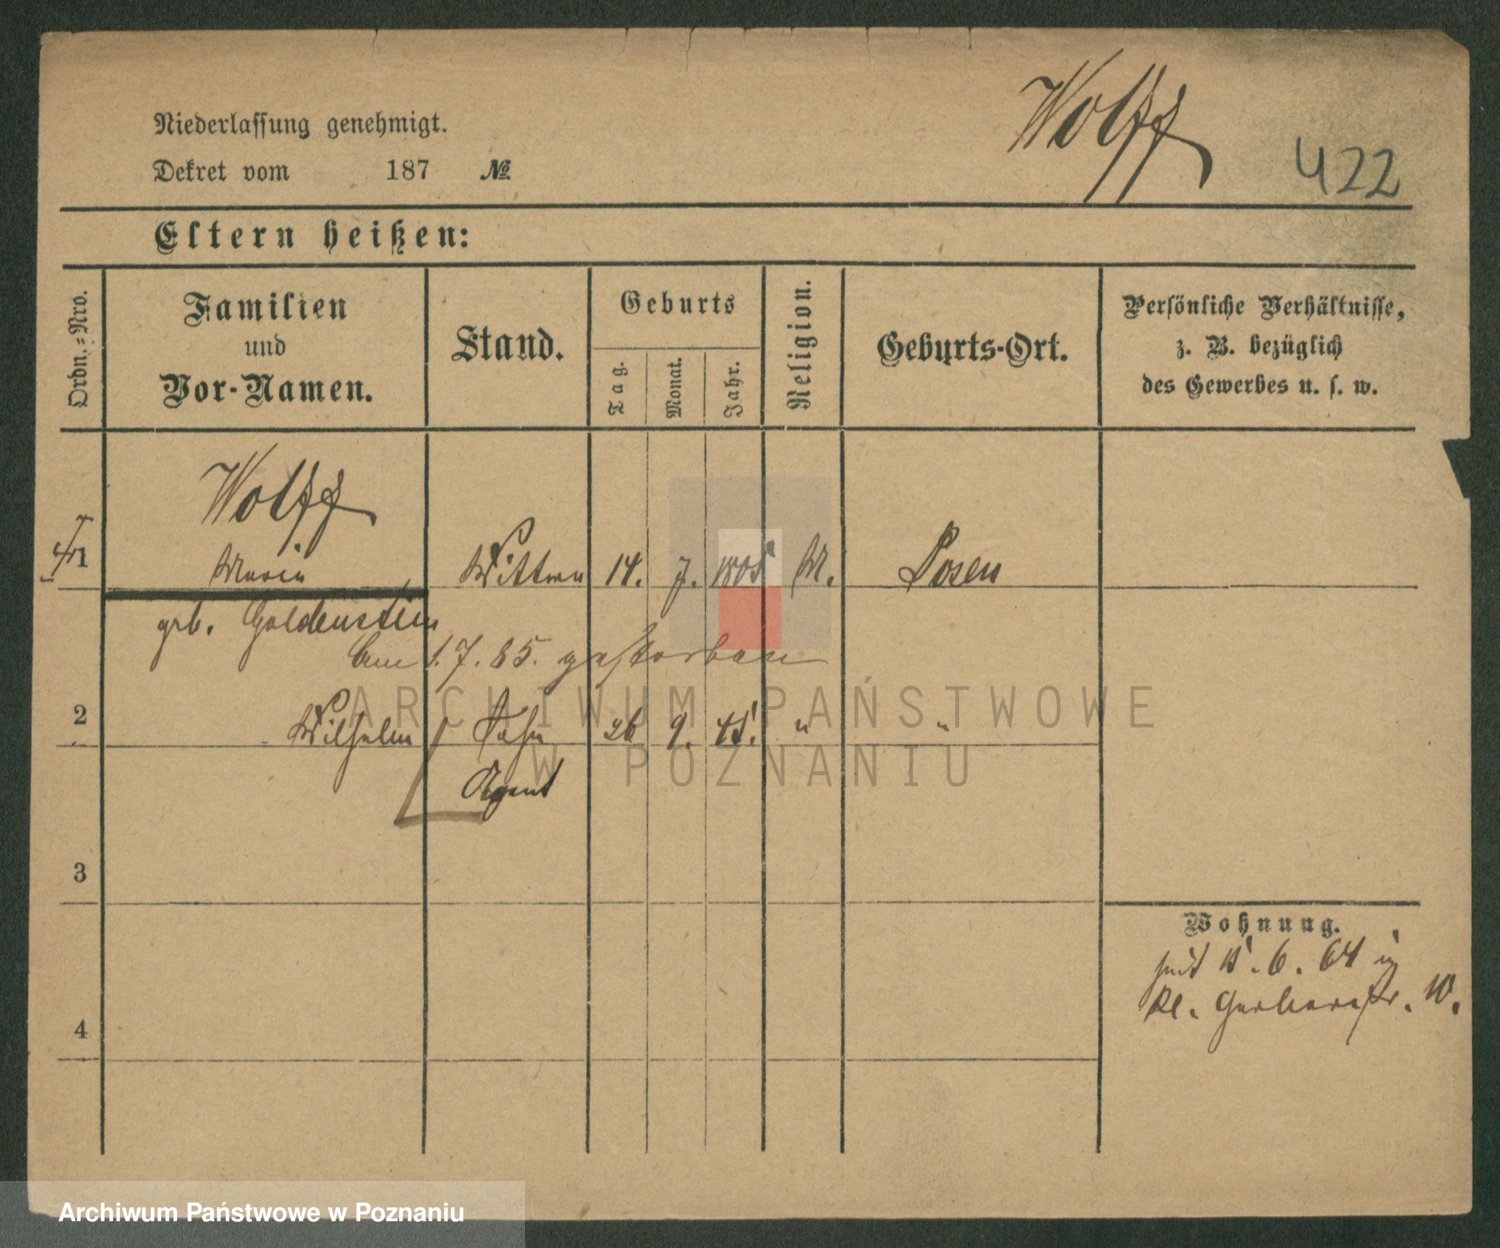 Wolff
422
Niederlassung genehmigt.
Dekret vom 187 №
Eltern heißen:
Ordn.-Nro.
Familien und Vor-Namen.
Stand.
Geburts
Tag.
Monat.
Jahr.
Religion.
Geburts-Ort.
Persönliche Verhältnisse,
z. B. bezüglich
des Gewerbes u. s. w.
Wolff
1 Maria Wittwe 14. 7. 1805 M. Posen
geb. Goldenstein
Am 1. 7. 85. gestorben
2 Wilhelm Sohn 26 9. 45. " "
Agent
3
4
Wohnung.
seit 15. 6. 64 in
Kl. Gerberstr. 10.
ARCHIWUM PAŃSTWOWE
W POZNANIU
Archiwum Państwowe w Poznaniu